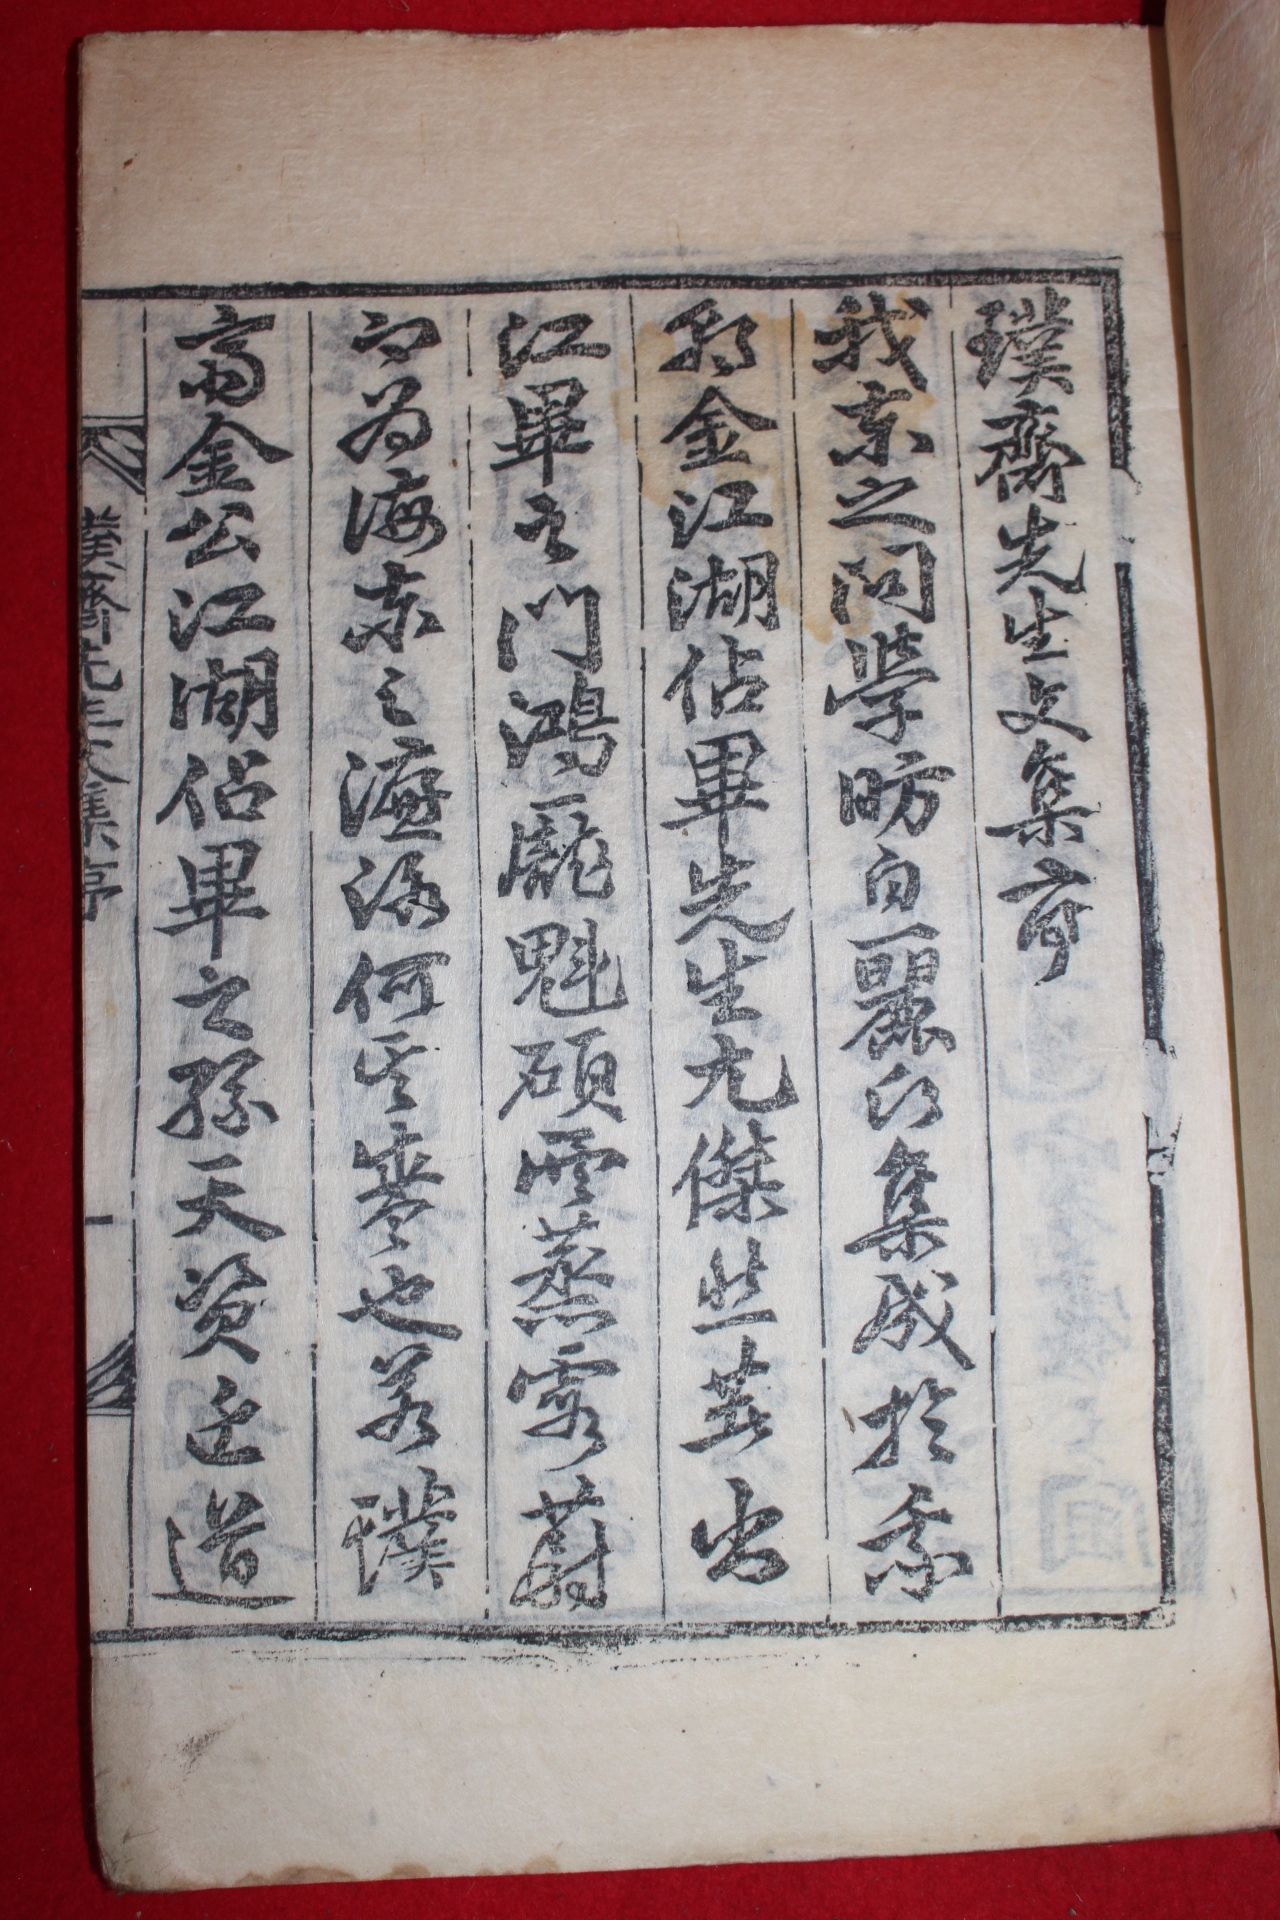 璞齋先生文集序
我東之問學昉自麗集成於
朝金江湖佔畢先生尤傑然並出
江畢之門鴻龐魁碩雲蒸霧蔚
爲海東之濂洛何其盛也若璞
齋金公江湖佔畢之孫天資近道
璞齋先生文集序
一